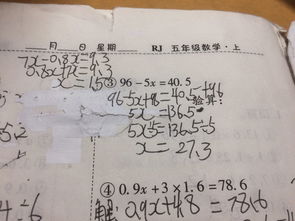 月 日 星期 RJ 五年级数学·上
7x-0.8x=9.3
0.8x+7x=9.3
x=1.5
③ 96-5x=40.5
96-5x+8=40.5+96
验算:
5x=136.5
5x÷5=136.5÷5
x=27.3
④ 0.9x+3×1.6=78.6
解: 0.9x+4.8=78.6